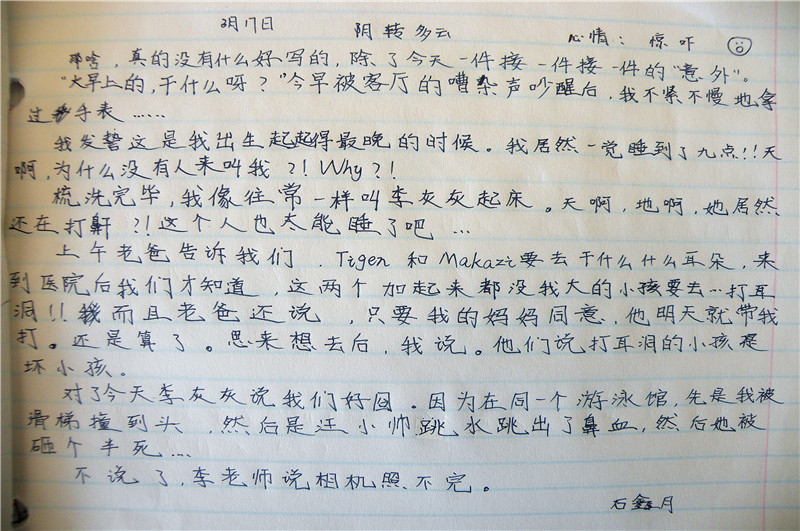 2月17日 阴转多云 心情：惊吓
那啥，真的没有什么好写的，除了今天一件接一件接一件的“意外”。
“大早上的，干什么呀？”今早被客厅的嘈杂声吵醒后，我不紧不慢地拿
过手表……
我发誓这是我出生起起得最晚的时候。我居然一觉睡到了九点!!天
啊，为什么没有人来叫我?!Why?!
梳洗完毕，我像往常一样叫李灰灰起床。天啊，地啊，她居然
还在打鼾?!这个人也太能睡了吧…
上午老爸告诉我们，Tigen和Makazi要去干什么什么耳朵，来
到医院后我们才知道，这两个加起来都没我大的小孩要去…打耳
洞!!我而且老爸还说，只要我的妈妈同意，他明天就带我
打。还是算了。思来想去后，我说。他们说打耳洞的小孩是
坏小孩。
对了今天李灰灰说我们好囧。因为在同一个游泳馆，先是我被
滑梯撞到头，然后是汪小帅跳水跳出了鼻血，然后她被
砸个半死…
不说了，李老师说相机照不完。
石鑫月